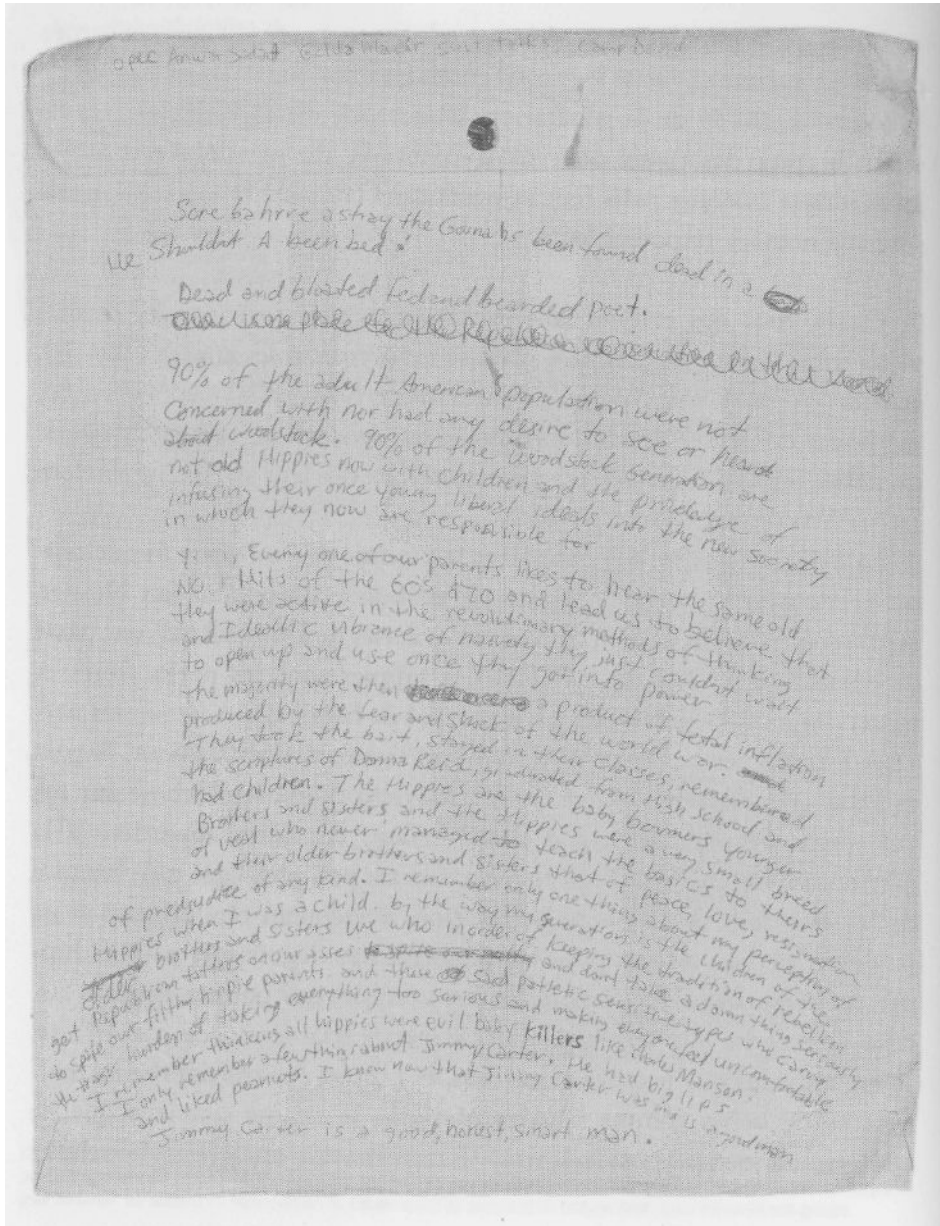 opec Anwar Sadat Golda Mäeir salt talks. Camp David
Scre bahrre ashay the Goma hs been found dead in a
He Shouldnt A been bed!
Dead and bloated fed and bearded poet.
90% of the adult American population were not
Concerned with nor had any desire to see or hear
about woodstock. 90% of the woodstock Generation are
not old Hippies now with children and the
infusing their once young liberal ideals into the new
in which they now are responsible for
Every one of our parents likes to hear the same old
NO. 1 Hits of the 60s &70 and lead us to believe that
they were active in the revolutionary methods of thinking
and Idealic vibrance of they just couldnt wait
to open up and use once they got into power
the majority were then a product of fetal inflation
produced by the fear and shock of the world war.
They took the bait, stayed in their classes, remembered
the scriptures of Donna Reid, graduated from High school and
had Children. The Hippies are the baby boomers younger
Brothers and sisters and the Hippies were a very small breed
of who never managed teach the basics to theirs
and their older brothers and sisters that of peace, love,
of predjudice of any kind. I remember only one thing about my perception of
Hippies when I was a child. by the way my generation is the children of the
older brothers and sisters we who inorder of keeping the tradition of rebellion
get Republican tattoes on our asses and dont take a damn thing seriously
to spite our filthy hippie parents. and these sad pathetic sensitive types who carry
the burden of taking everything too serious and making everyone feel uncomfortable
I remember thinking all hippies were evil baby killers like Charles Manson.
I only remember a few things about Jimmy Carter. He had big lips
and liked peanuts. I know now that Jimmy Carter was and is a good man
Jimmy Carter is a good, honest, smart man.